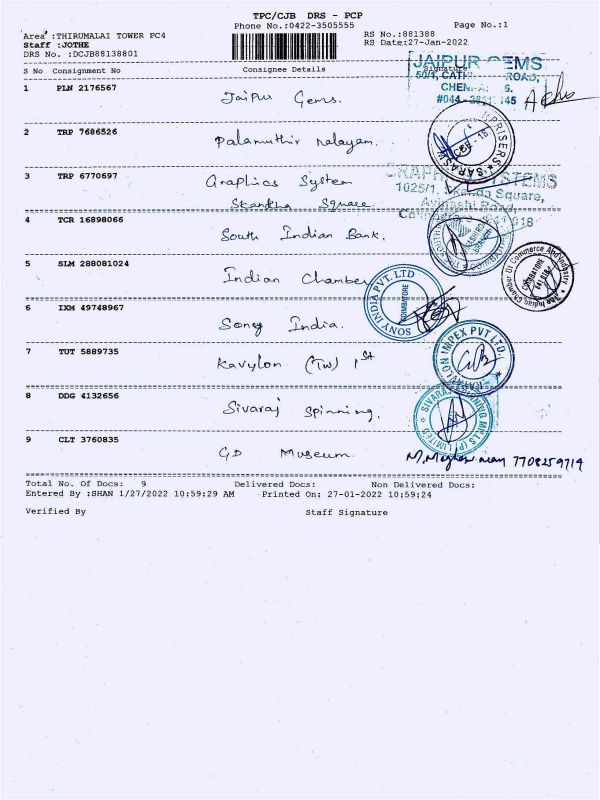 TPC/CJB DRS - PCP
Phone No.:0422-3505555
Page No.:1
Area :THIRUMALAI TOWER PC4
RS No.:881388
Staff :JOTHE
RS Date:27-Jan-2022
DRS No. :DCJB88138801
S No Consignment No Consignee Details Signature
JAIPUR GEMS
50/1, ROAD,
#044 -
1 PLN 2176567 Jaipur Gems.
2 TRP 7686526 Palamuthir nalayam.
3 TRP 6770697 Graphics System
Skantha Square
1025/1, Square,
Avinashi Road,
4 TCR 16898066 South Indian Bank.
5 SLM 288081024 Indian Chamber
The Indian Chamber Of Commerce And Industry
COIMBATORE
6 IXM 49748967 Sony India.
SONY INDIA PVT. LTD
COIMBATORE
7 TUT 5889735 Kavylon (Tw) 1st
KAVYLON IMPEX PVT LTD.
8 DDG 4132656 Sivaraj Spinning.
SIVARAJ SPINNING MILLS (P) LIMITED
9 CLT 3760835 GD Museum.
7708259714
Total No. Of Docs: 9 Delivered Docs: Non Delivered Docs:
Entered By :SHAN 1/27/2022 10:59:29 AM Printed On: 27-01-2022 10:59:24
Verified By Staff Signature